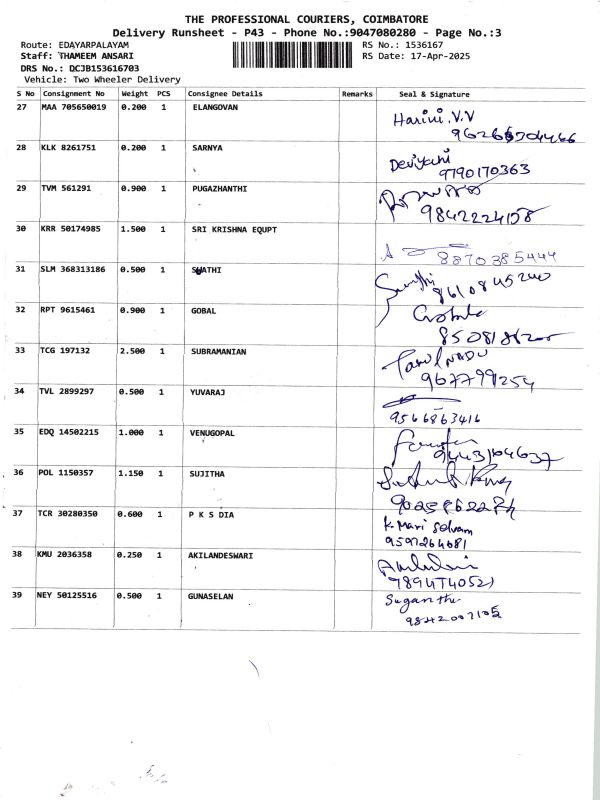 THE PROFESSIONAL COURIERS, COIMBATORE
Delivery Runsheet - P43 - Phone No.:9047080280 - Page No.:3
Route: EDAYARPALAYAM RS No.: 1536167
Staff: THAMEEM ANSARI RS Date: 17-Apr-2025
DRS No.: DCJB153616703
Vehicle: Two Wheeler Delivery
S No Consignment No Weight PCS Consignee Details Remarks Seal & Signature
27 MAA 705650019 0.200 1 ELANGOVAN
Harini.V.V
28 KLK 8261751 0.200 1 SARNYA
Deviyani
9790170363
29 TVM 561291 0.900 1 PUGAZHANTHI
9842224158
30 KRR 50174985 1.500 1 SRI KRISHNA EQUPT
8870385444
31 SLM 368313186 0.500 1 SWATHI
32 RPT 9615461 0.900 1 GOBAL
33 TCG 197132 2.500 1 SUBRAMANIAN
Tamil NADU
9677991254
34 TVL 2899297 0.500 1 YUVARAJ
9566863416
35 EDQ 14502215 1.000 1 VENUGOPAL
36 POL 1150357 1.150 1 SUJITHA
37 TCR 30280350 0.600 1 P K S DIA
K. Mari Selvam
9597264681
38 KMU 2036358 0.250 1 AKILANDESWARI
39 NEY 50125516 0.500 1 GUNASELAN
Suganthi
9842007105